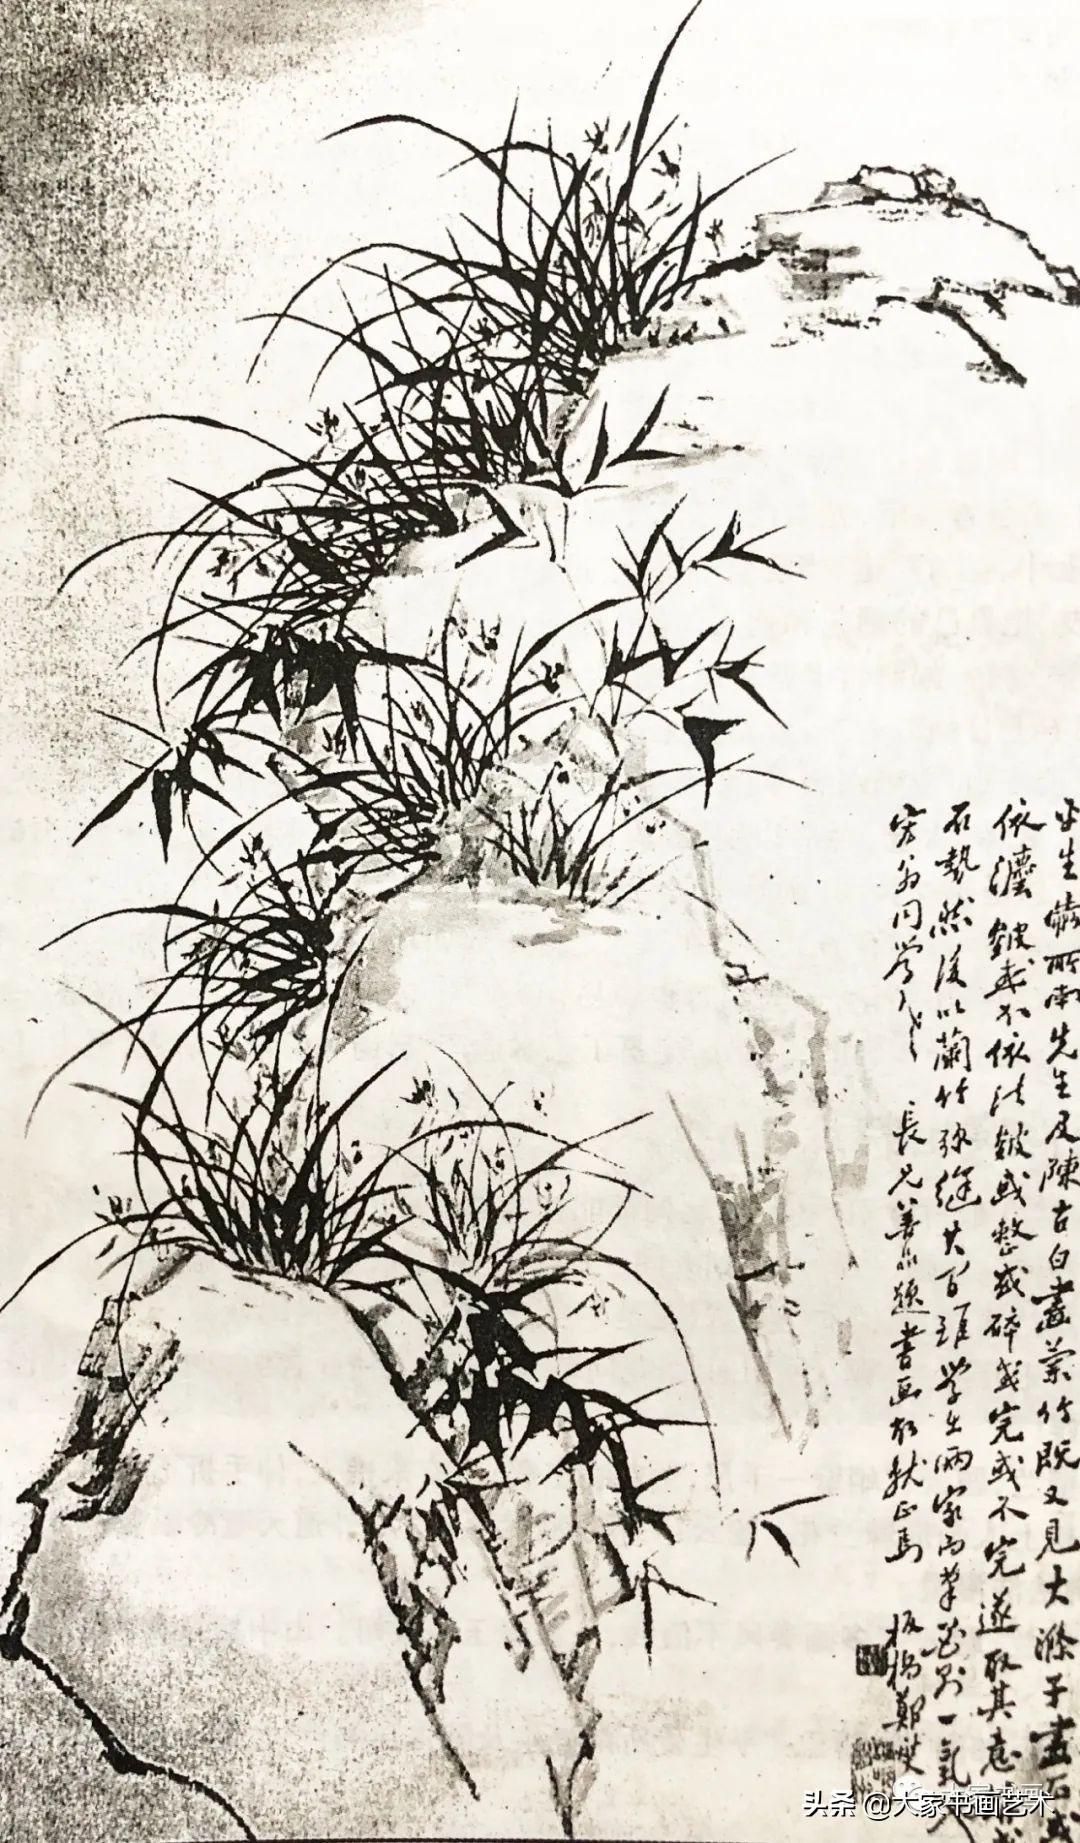 平生愛所南先生及陳古白畫蘭竹既又見大滌子畫石或
依法皴或不依法皴或整或碎或完或不完遂取其意
石勢然後以蘭竹弥縫其間雖學出兩家而筆墨則一氣
宏翁同學老長兄善品題書画故就正焉
板橋鄭燮
头条 @大家书画艺术